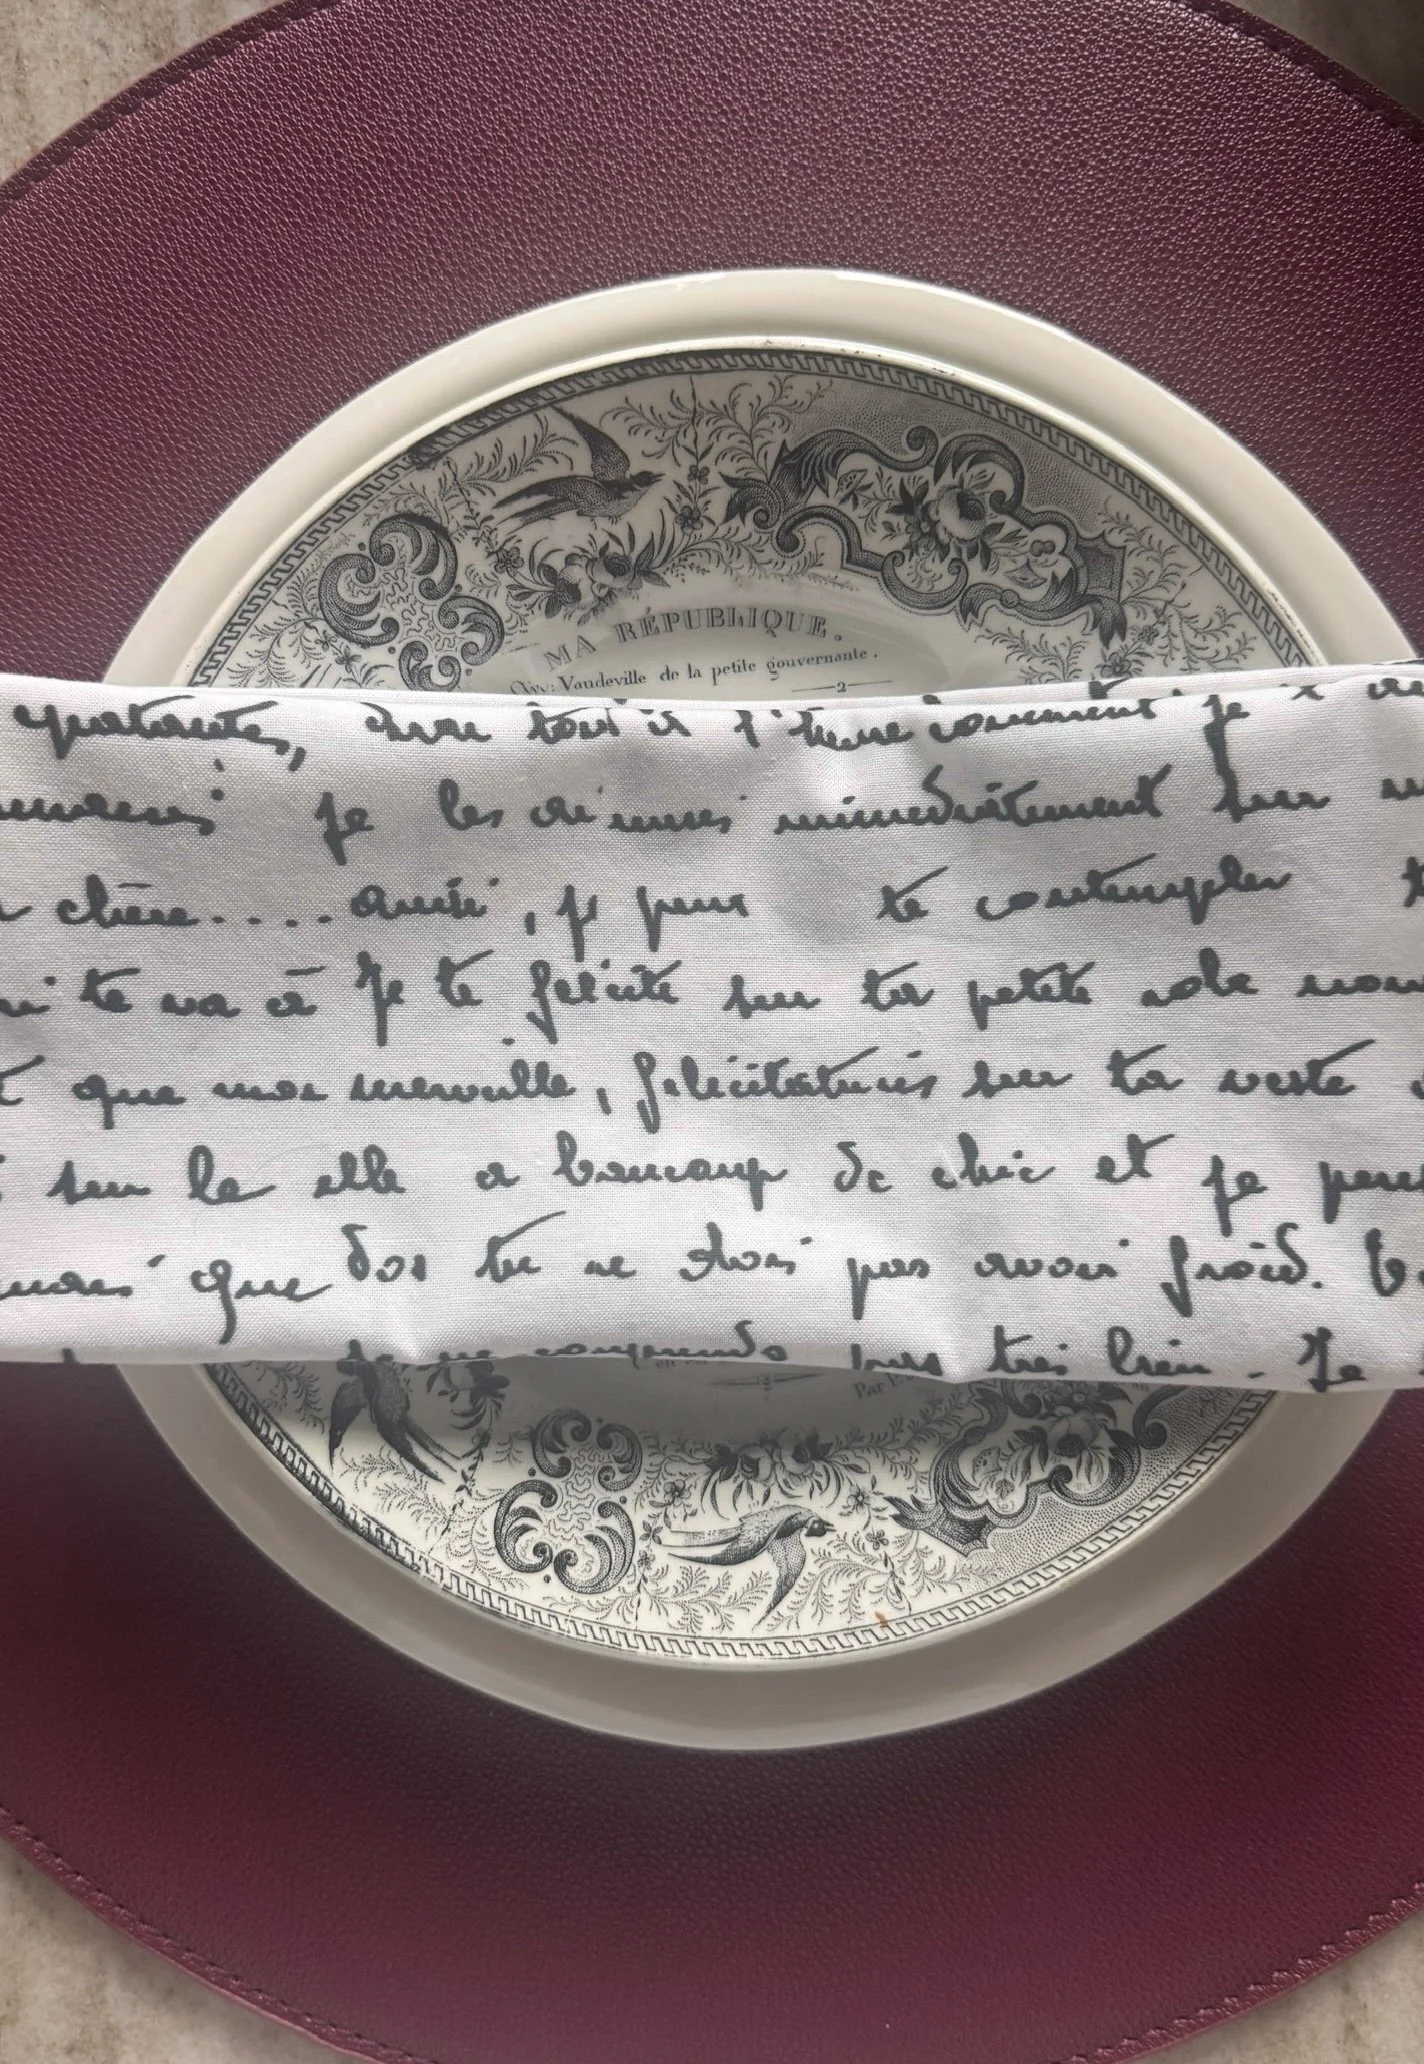 MA RÉPUBLIQUE.
Air: Vaudeville de la petite gouvernante.
2
tout à l'heure comment je
je les ai mises immédiatement sur
chère.... ainsi, je peux te contempler
te va à Je te félicite sur ta petite robe
que mon merveille, félicitations sur ta veste
sur la elle a beaucoup de chic et je
que dos tu ne dois pas avoir froid.
je ne comprends pas très bien. Je
Par